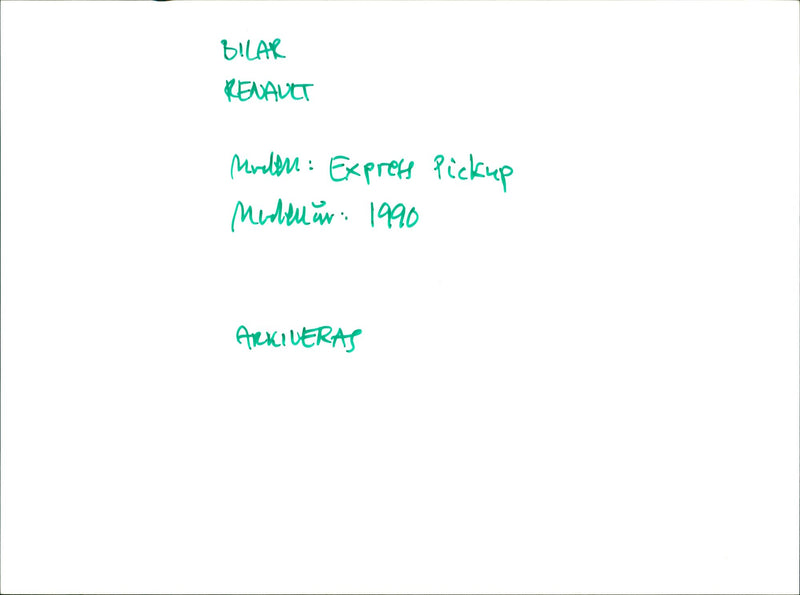 BILAR
RENAULT
Modell: Express Pickup
Modellår: 1990
ARKIVERAS